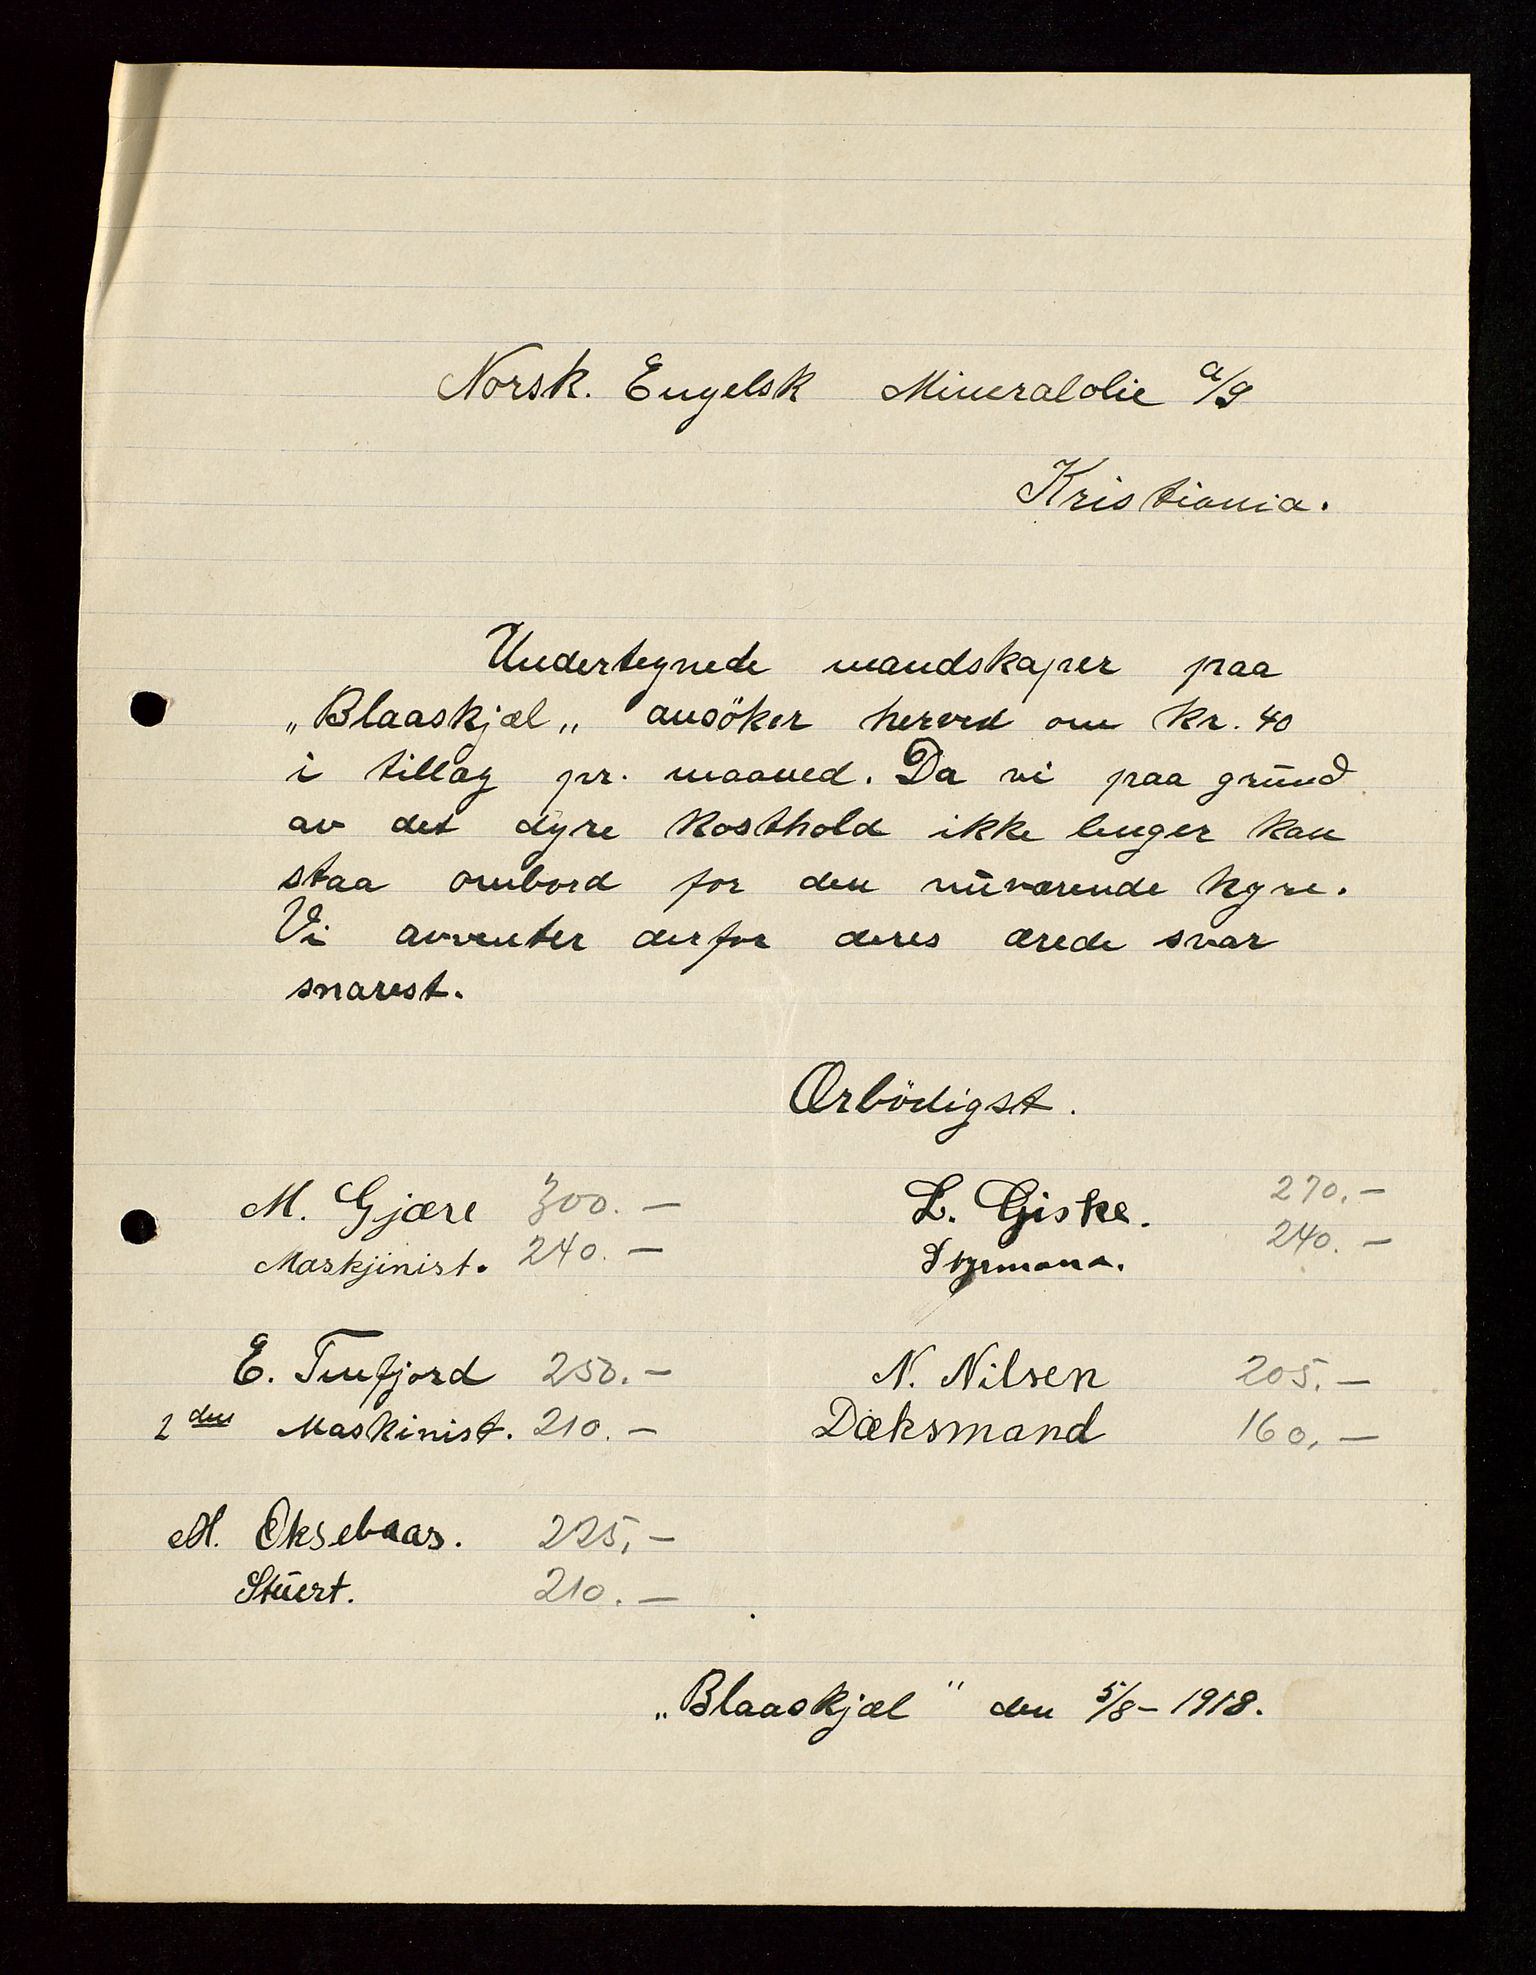 Norsk. Engelsk Mineralolie a/s
Kristiania.
Undertegnede mandskaper paa
„Blaaskjæl„ ansöker herved om kr. 40
i tillæg pr. maaned. Da vi paa grund
av det dyre kosthold ikke lenger kan
staa ombord for den nuværende hyre.
Vi avventer derfor deres ærede svar
snarest.
Ærbödigst.
M. Gjære 300.— L. Giske. 270,—
Maskjinist. 240.— Styrmann. 240.—
E. Tuefjord 250.— N. Nilsen 205.—
2den Maskinist. 210.— Dæksmand 160,—
M. Oksebaas. 225,—
Stuert. 210.—
„Blaaskjæl" den 5/8–1918.